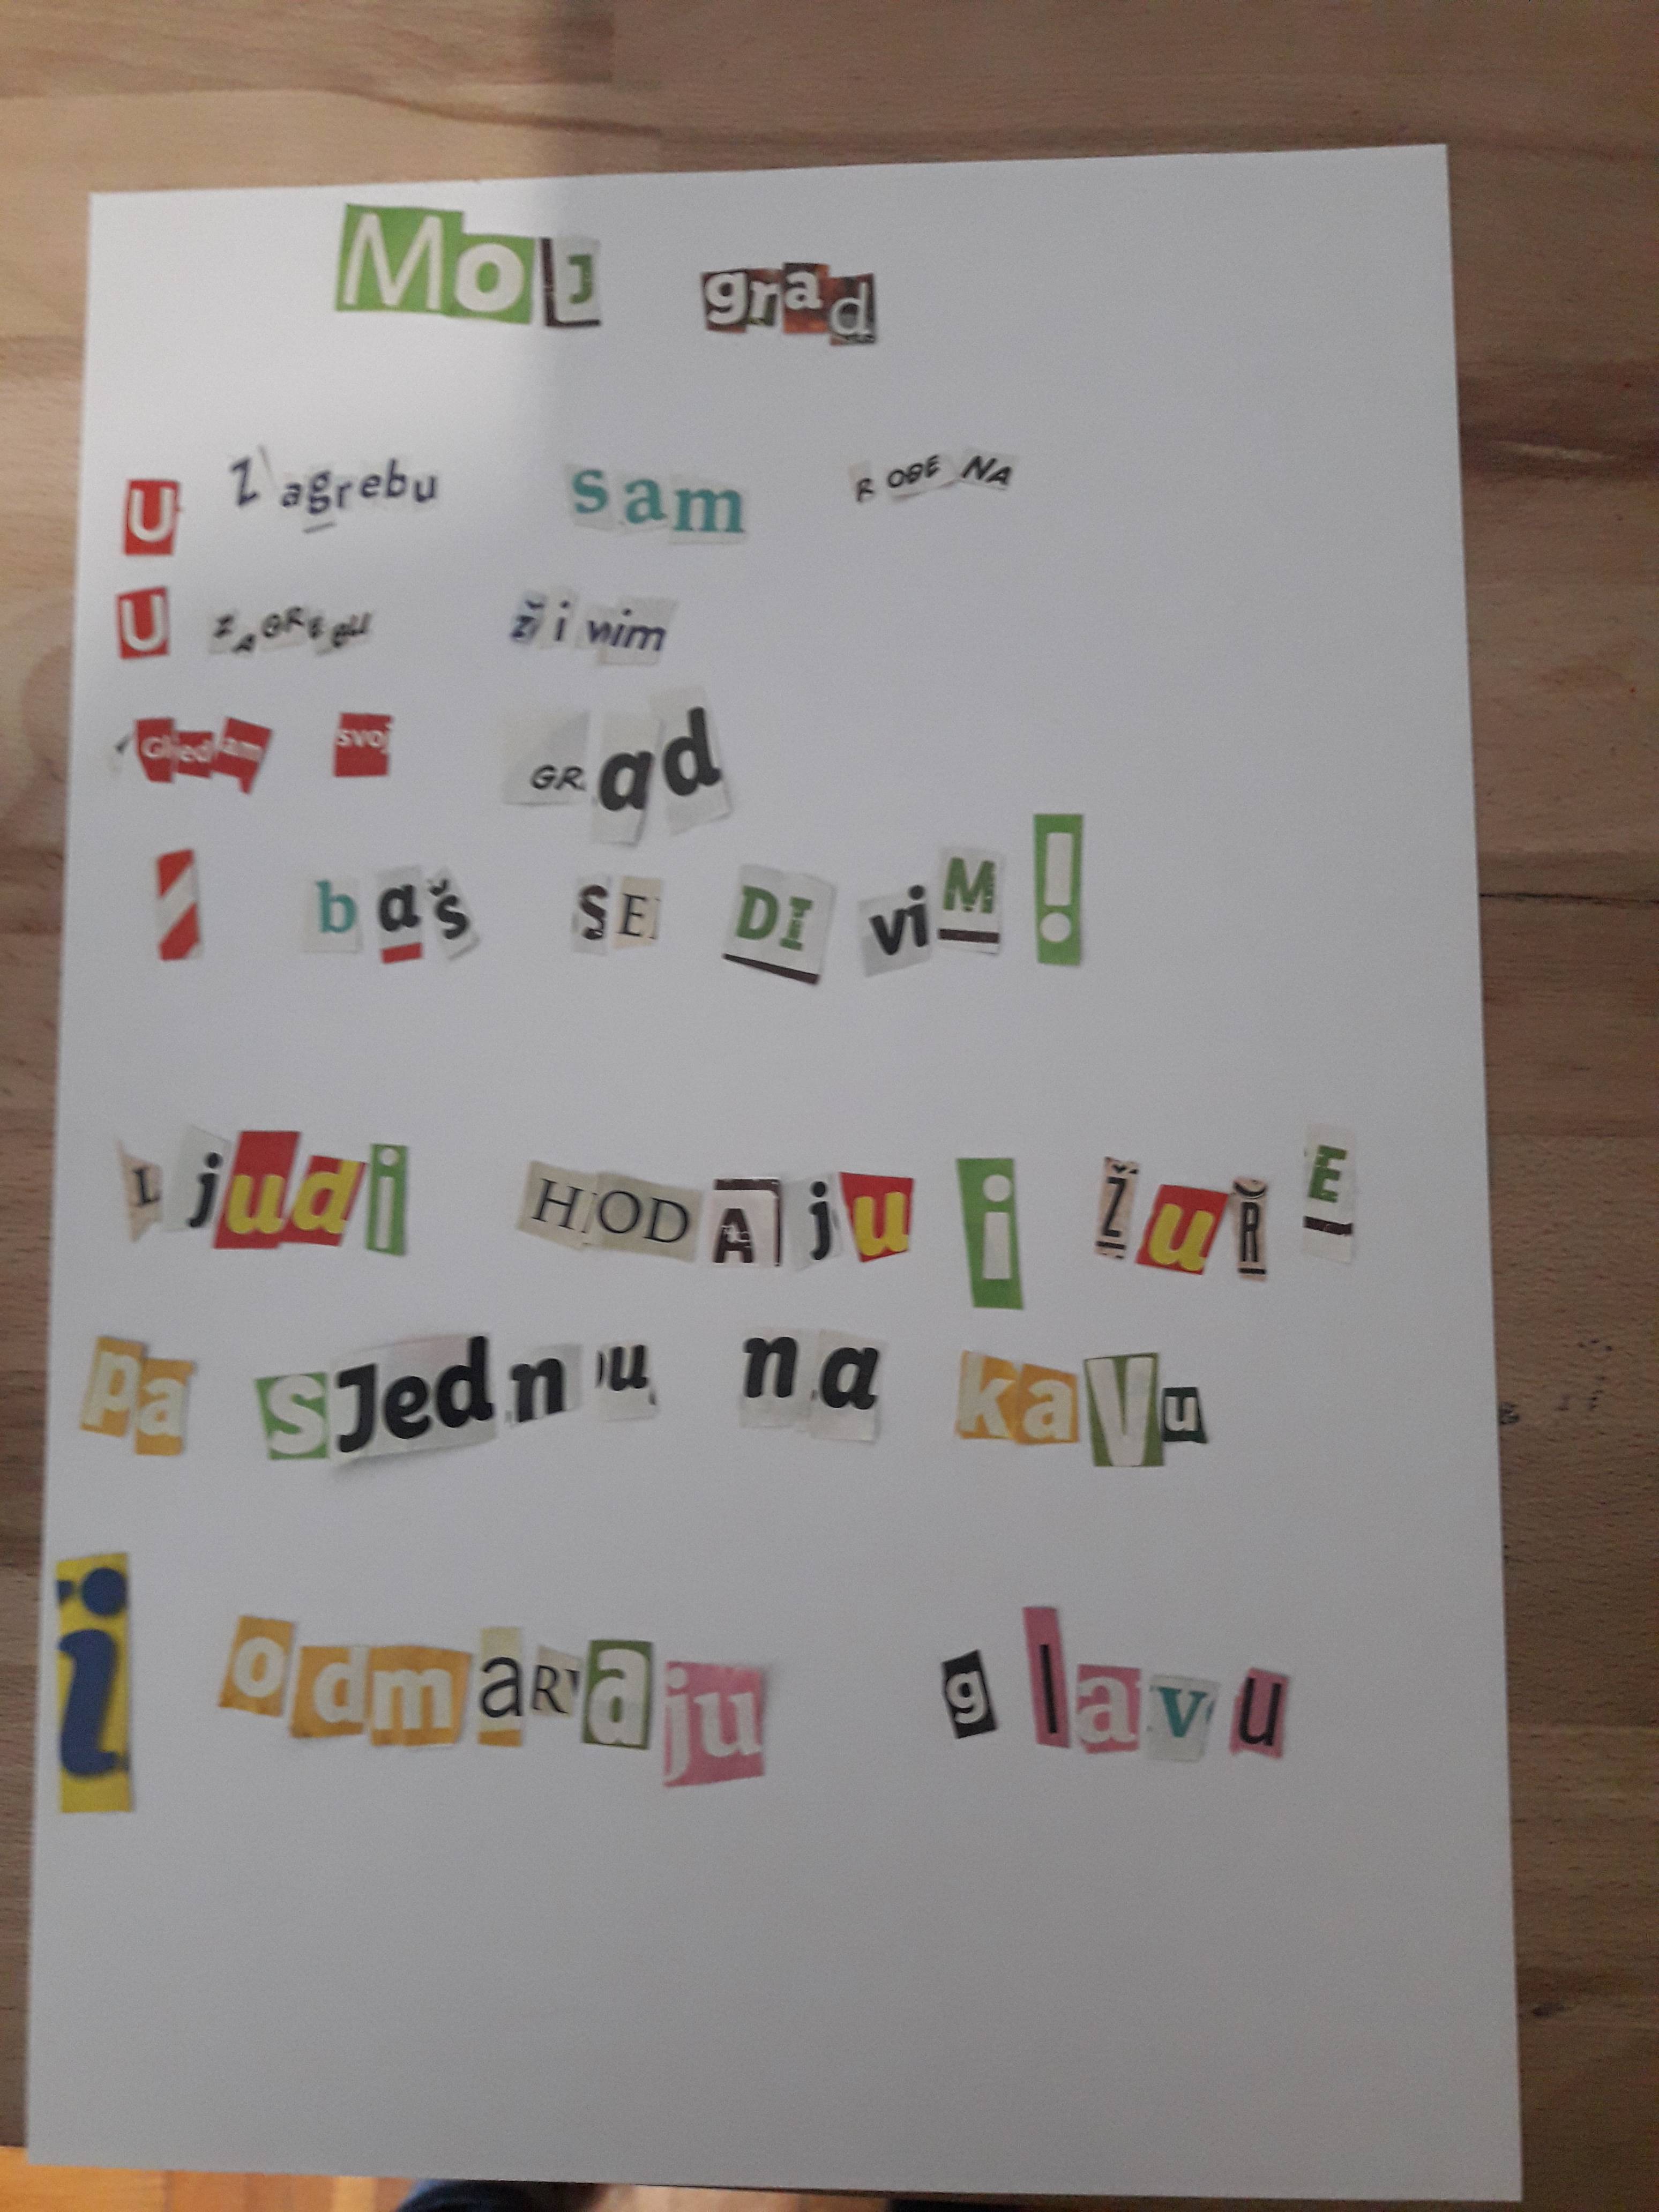 MoJ grad
U Zagrebu sam ROĐENA
U ZAGREBU živim
Gledam svoj GRad
I baš SE DIviM!
Ljudi HODAju i ŽuRE
pa sJednu na kaVu
i odmaRaju glavu